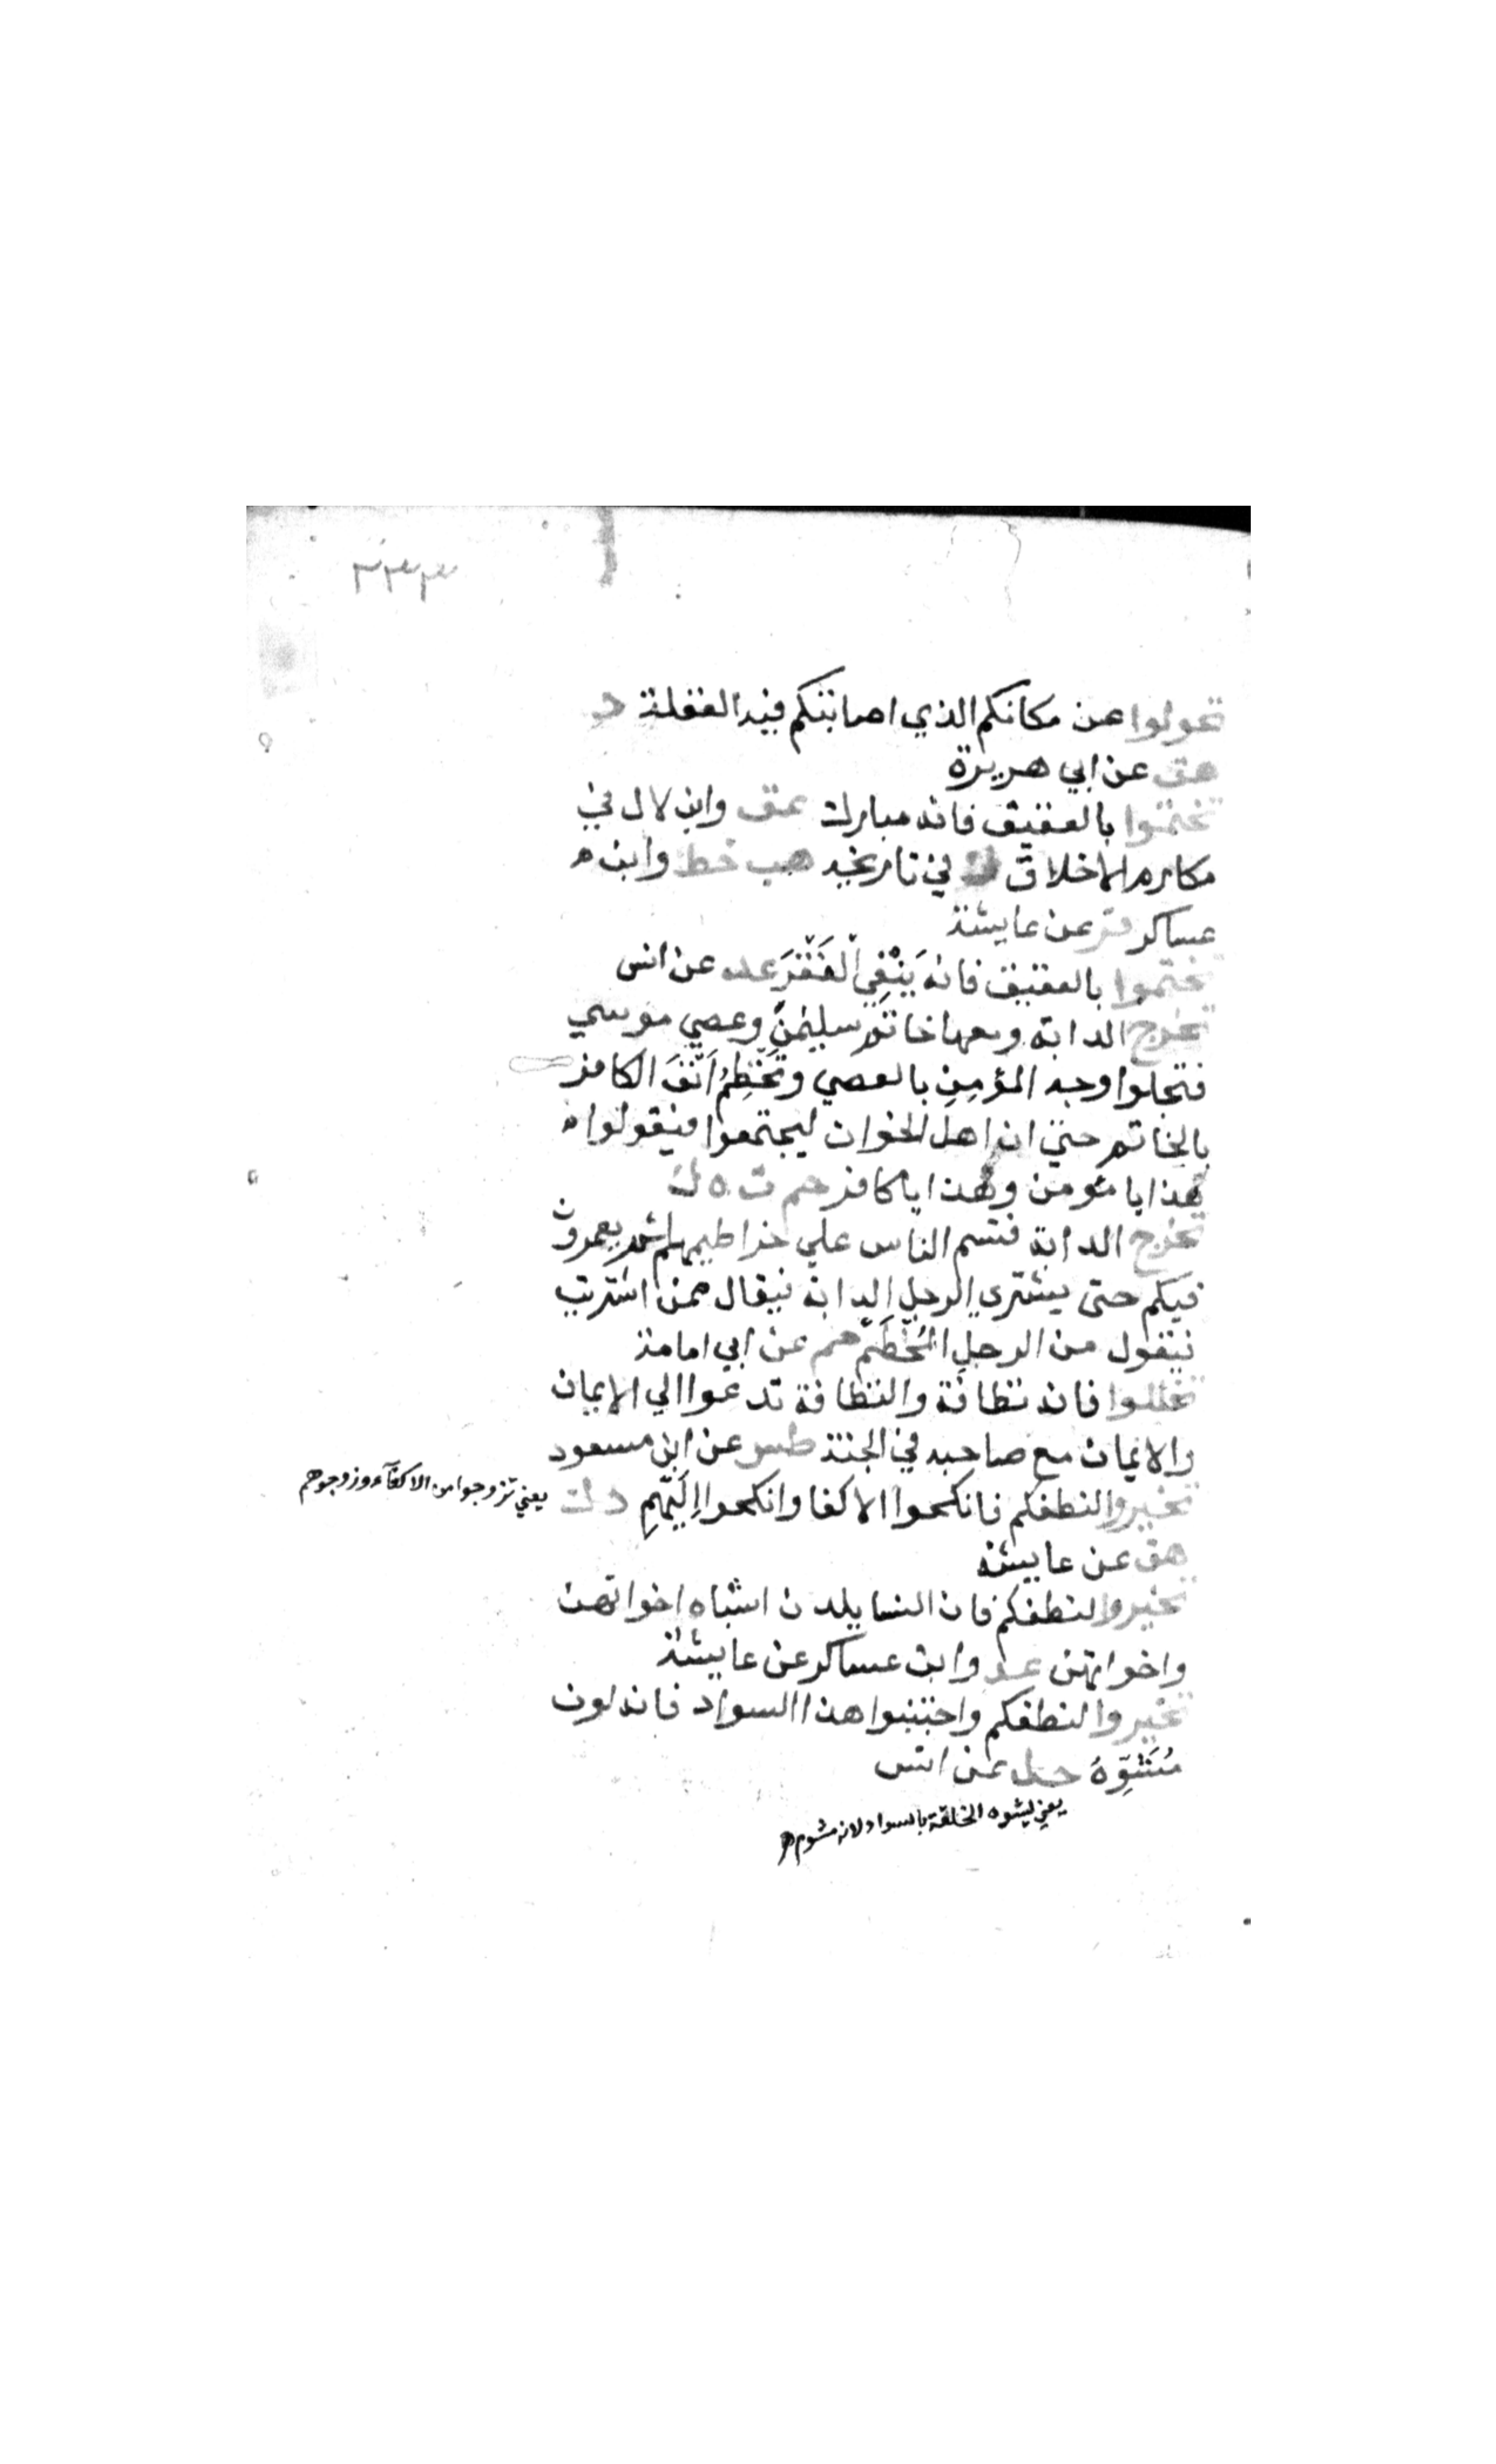 ٢٣٣
تحولوا عن مكانكم الذي اصابتكم فيه الغفلة د
هق عن ابي هريرة
تختموا بالعقيق فانه مبارك عق وابن لال في
مكارم الاخلاق ك في تاريخه هب خط وابن م
عساكر فر عن عايشة
تختموا بالعقيق فانه يَنْفِي الفَقْرَ عد عن انس
تخرج الدابة ومعها خاتم سليمٰن وعصي موسي
فتجلوا وجه المؤمِنِ بالعصي وتَخْطِمُ اَنْفَ الكافر
بالخاتم حتي ان اهل الخوان ليجتمعوا فيقولوا ه
هذا يا مؤمن وهذا يا كافر حم ت ه ك
تخرج الدابة فتسم الناس علي خراطيمهم ثم يعمرون
فيكم حتى يشتري الرجل الدابة فيقال ممن اشتريت
فيقول من الرجلِ المُخَطَّمِ حم عن ابي امامة
تخللوا فانه نظافة والنظافة تدعوا الي الايمان
والايمان مع صاحبه في الجنة طس عن ابن مسعود
تخيروا لنطفكم فانكحوا الاكفا وانكحوا اِلَيْهِمِ د ك
يعني تزوجوا من الاكفآء وزوجوهم
هق عن عايشة
تخيروا لنطفكم فان النسا يلدن اشباه اخوانهن
واخواتهن عد وابن عساكر عن عايشة
تخيروا لنطفكم واجتنبوا هذا السواد فانه لون
مُشَوِّهَ حل عن انس
يعني يشوه الخلقة بالسواد لانه مشوم